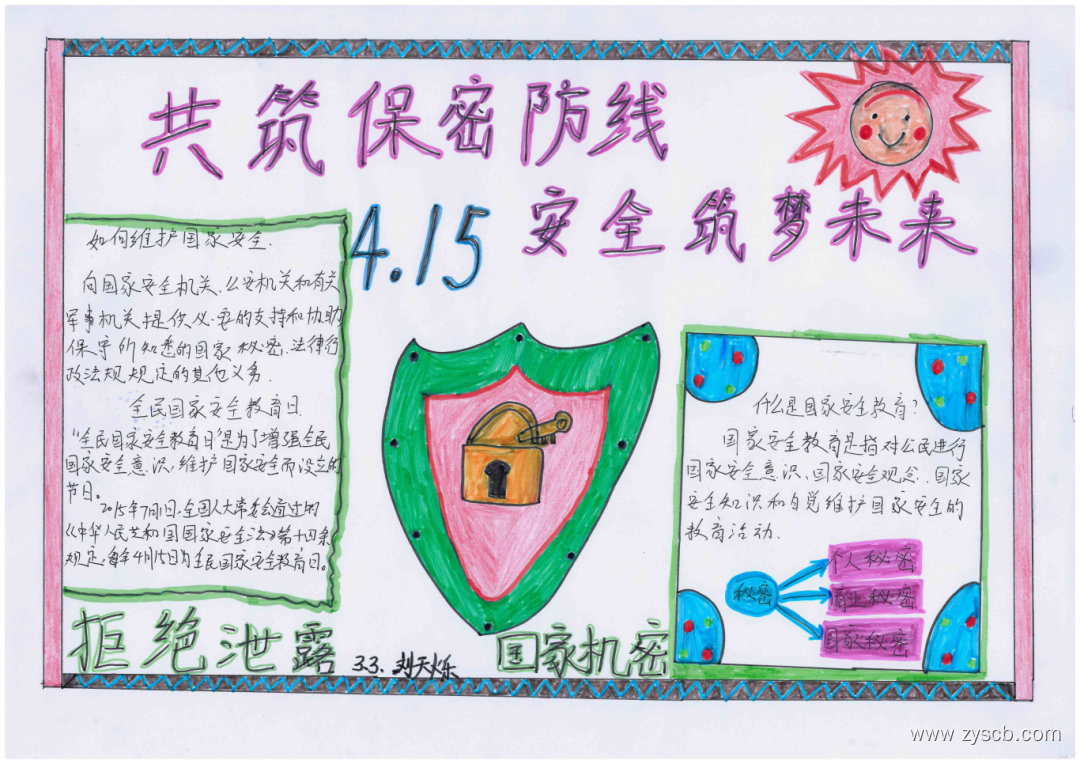 共筑保密防线
4.15 安全筑梦未来
如何维护国家安全.
向国家安全机关、公安机关和有关
军事机关提供必要的支持和协助
保守所知悉的国家秘密.法律行
政法规规定的其他义务.
全民国家安全教育日
"全民国家安全教育日"是为了增强全民
国家安全意识,维护国家安全而设立的
节日。
2015年7月1日,全国人大常委会通过的
《中华人民共和国国家安全法》第十四条
规定,每年4月15日为全民国家安全教育日。
什么是国家安全教育?
国家安全教育是指对公民进行
国家安全意识、国家安全观念、国家
安全知识和自觉维护国家安全的
教育活动.
秘密
个人秘密
商业秘密
国家秘密
拒绝泄露
3.3. 刘天烁
国家机密
www.zyscb.com